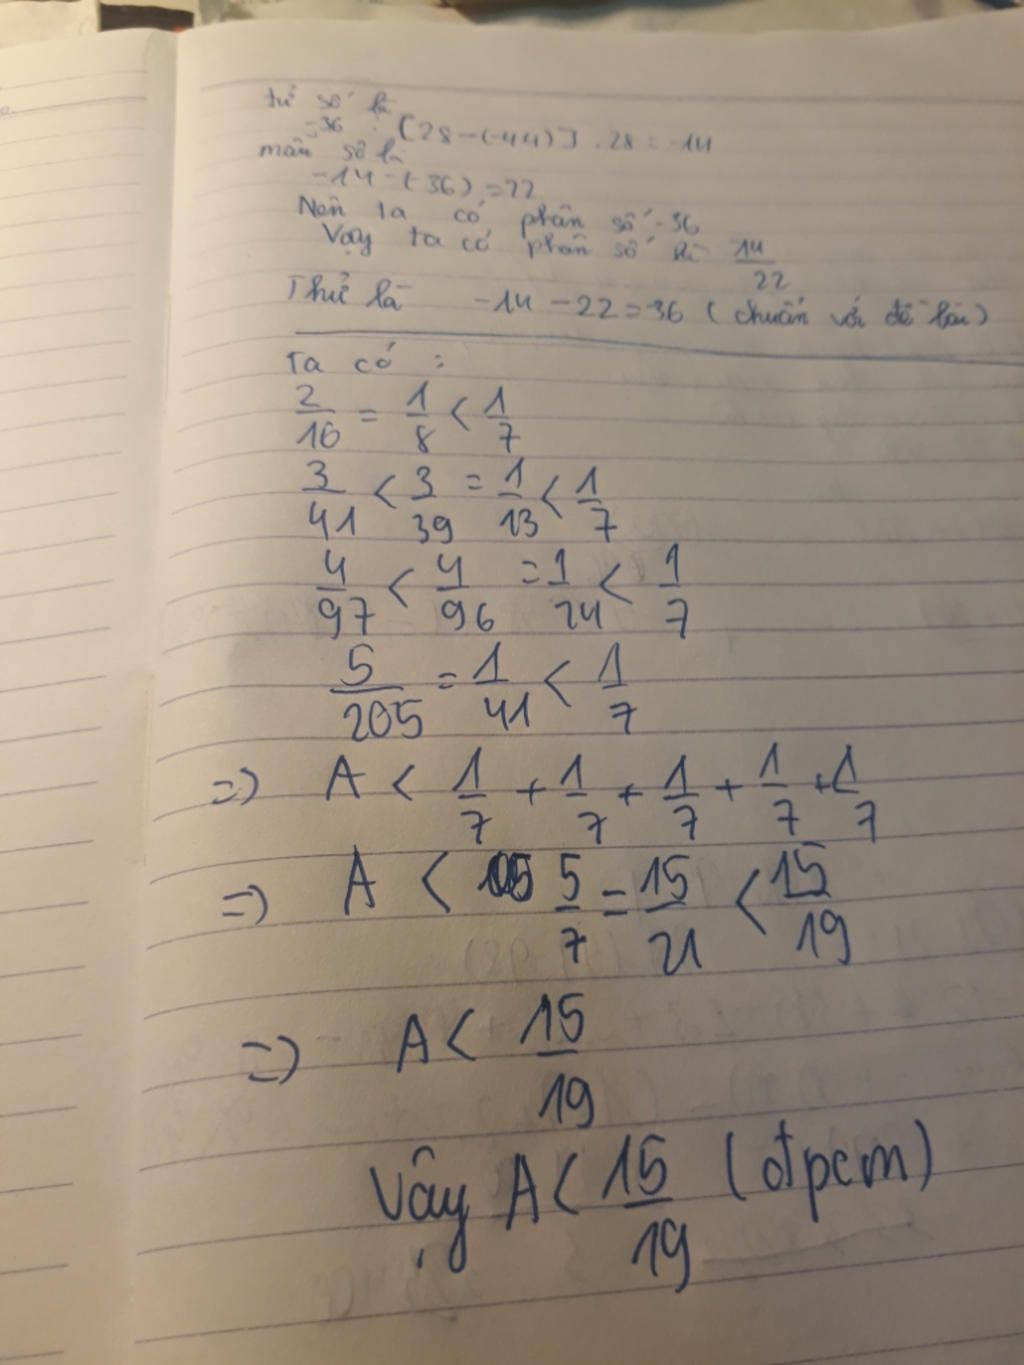 tử số là
=-36 : [28-(-44)] . 28 = -14
mẫu số là
-14-(-36) = 22
Nên ta có phân số -36
Vậy ta có phân số là 14/22
Thử là -14 - 22 = -36 (chuẩn với đề bài)
Ta có :
2/16 = 1/8 < 1/7
3/41 < 3/39 = 1/13 < 1/7
4/97 < 4/96 = 1/24 < 1/7
5/205 = 1/41 < 1/7
=> A < 1/7 + 1/7 + 1/7 + 1/7 + 1/7
=> A < 5/7 = 15/21 < 15/19
=> A < 15/19
Vậy A < 15/19 (đpcm)